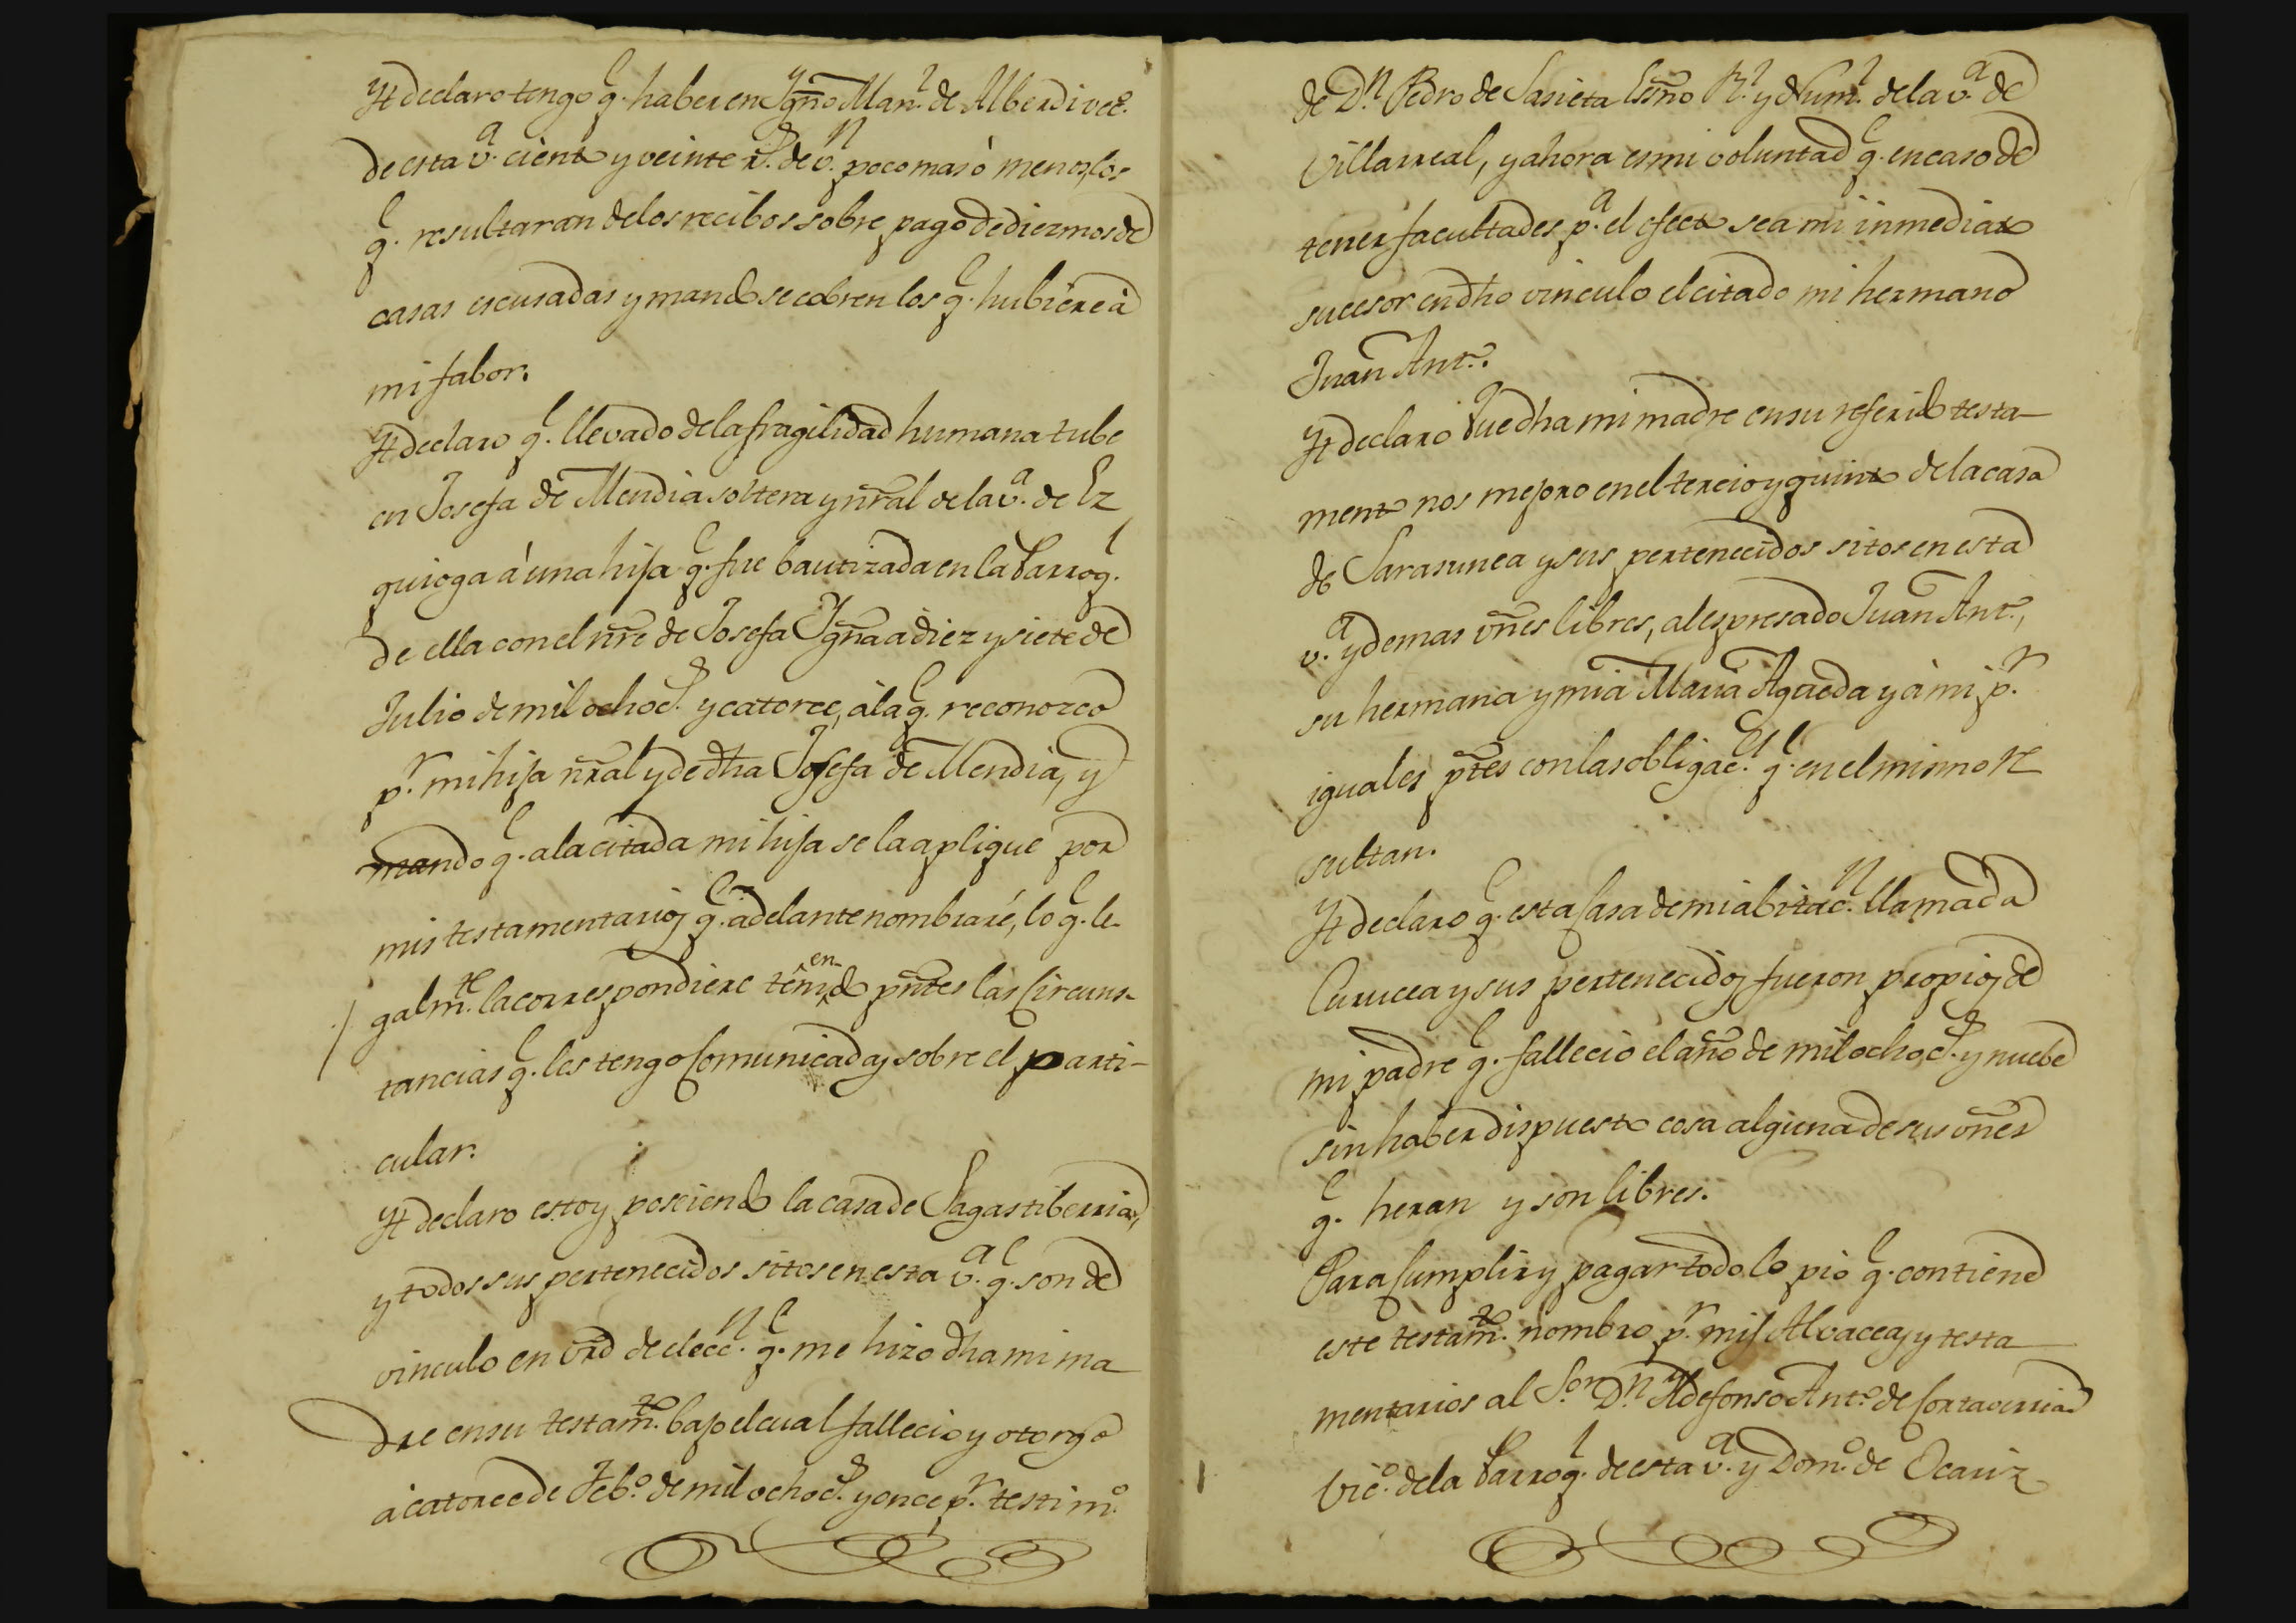 Yt declaro tengo q.e haber en Ygn̄o Man.l de Alberdi vec.o
de esta v.a ciento y veinte r.s de v.n poco mas ó menos, los
q.e resultaran de los recibos sobre pago de diezmos de
casas escusadas y mando se cobren los q.e hubiere à
mi fabor.
Yt declaro q.e llevado de la fragilidad humana tube
en Josefa de Mendia soltera y nr̄al de la v.a de Ez
quioga á una hija q.e fue bautizada en la Parroq.l
de ella con el nr̄e de Josefa Ygn̄a a diez y siete de
Julio de mil ochoc.s y catorce, à la q.e reconozco
p.r mi hija nr̄al y de dh̄a Josefa de Mendia, y
mando q.e a la citada mi hija se la aplique por
mis testamentarios q.e adelante nombraré, lo q.e le-
galm.te la corrrespondiere teniendo pn̄tes las Circuns-
tancias q.e les tengo Comunicadas sobre el parti-
cular.
Yt declaro estoy poseiendo la casa de Sagastiberria,
y todos sus pertenecidos sitos en esta v.a q.e son de
vinculo en vr̄d de elecc.n q.e me hizo dh̄a mi ma
dre en su testam.to bajo el cual fallecio y otorgo
à catorce de Feb.o de mil ochoc.s y once p.r testim.o
de D.n Pedro de Sasieta Esn̄o R.l y Num.l de la v.a de
Villarreal, y ahora es mi voluntad q.e en caso de
tener facultades p.a el efecto sea mi inmediato
sucesor en dh̄o vinculo el citado mi hermano
Juan Ant.o.
Yt declaro Que dh̄a mi madre en su referido testa-
mento nos mejoro en el tercio y quinto de la casa
de Sarasunea y sus pertenecidos sitos en esta
v.a y demas vn̄es libres, al espresado Juan Ant.o,
su hermana y mia Maria Agueda y à mi p.r
iguales pr̄tes con las obligac.es q.e en el mismo re
sultan.
Yt declaro q.e esta Casa de mi abitac.n llamada
Curucea y sus pertenecidos fueron propios de
mi padre q.e fallecio el año de mil ochoc.s y nuebe
sin haber dispuesto cosa alguna de sus vn̄es
q.e heran y son libres.
Para Cumplir y pagar todo lo pio q.e contiene
este testam.to nombro p.r mis Alvaceas y testa
mentarios al S.or D.n Yldefonso Ant.o de Cortaverria
Vic.o de la Parroq.l de esta v.a y Dom.o de Ocariz